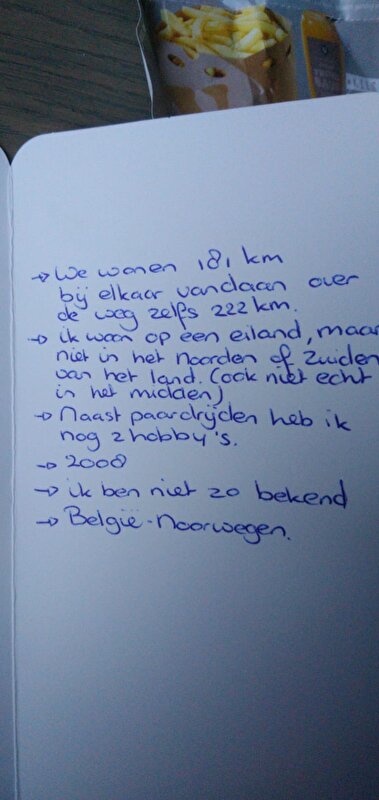 → We wonen 181 km
bij elkaar vandaan over
de weg zelfs 222 km.
→ ik woon op een eiland, maar
niet in het noorden of zuiden
van het land. (ook niet echt
in het midden)
→ Naast paardrijden heb ik
nog 2 hobby's.
→ 2008
→ ik ben niet zo bekend
→ België-Noorwegen.